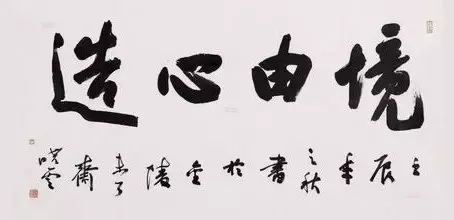 境由心造
壬辰年之秋書於金陵未了齋